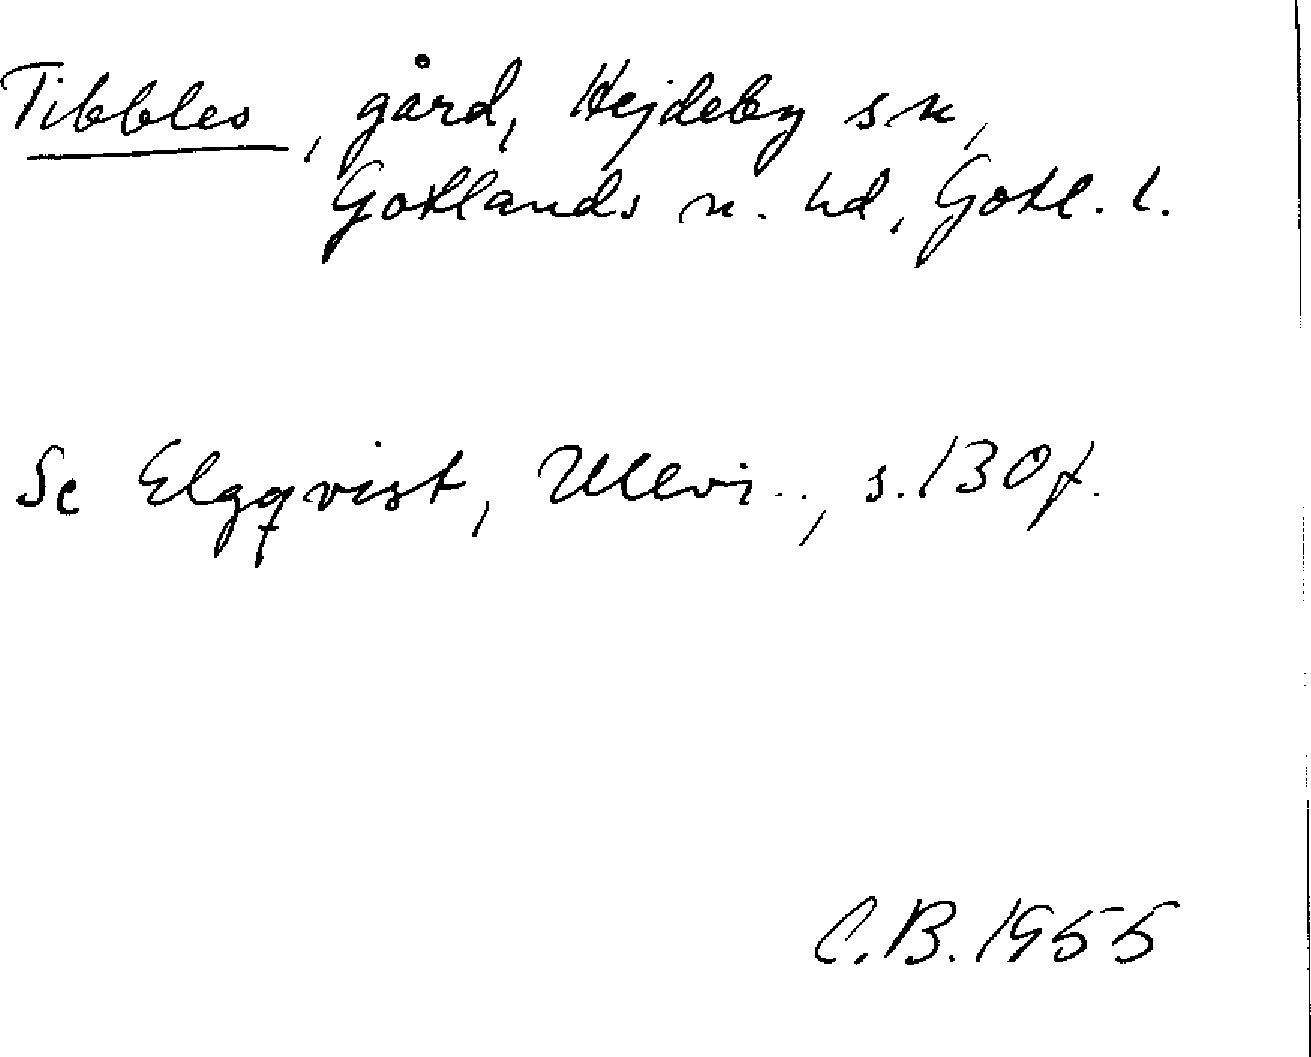 Tibbles, gård, Hejdeby sn,
Gotlands n. hd, Gotl. l.
Se Elgqvist, Ullvi.., s. 130 f.
C.B. 1955